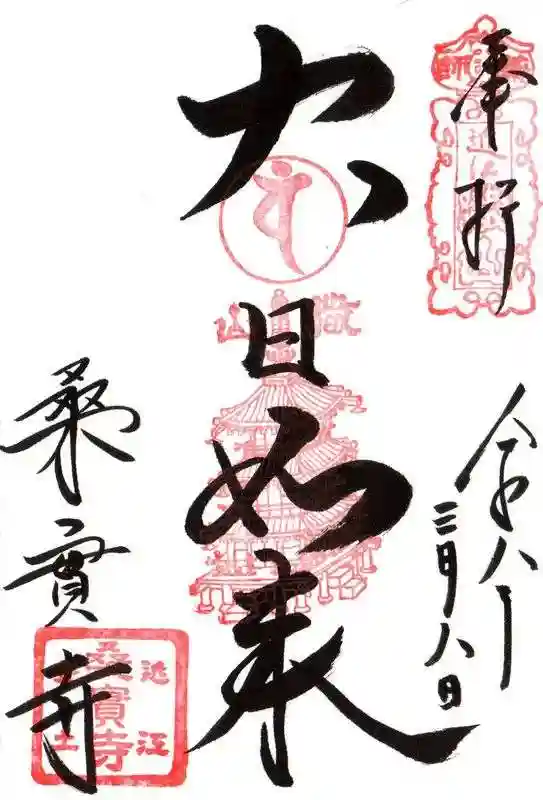 奉拝
令和八年
三月八日
大日如来
繖山
桑實寺
近江
桑實寺
安土